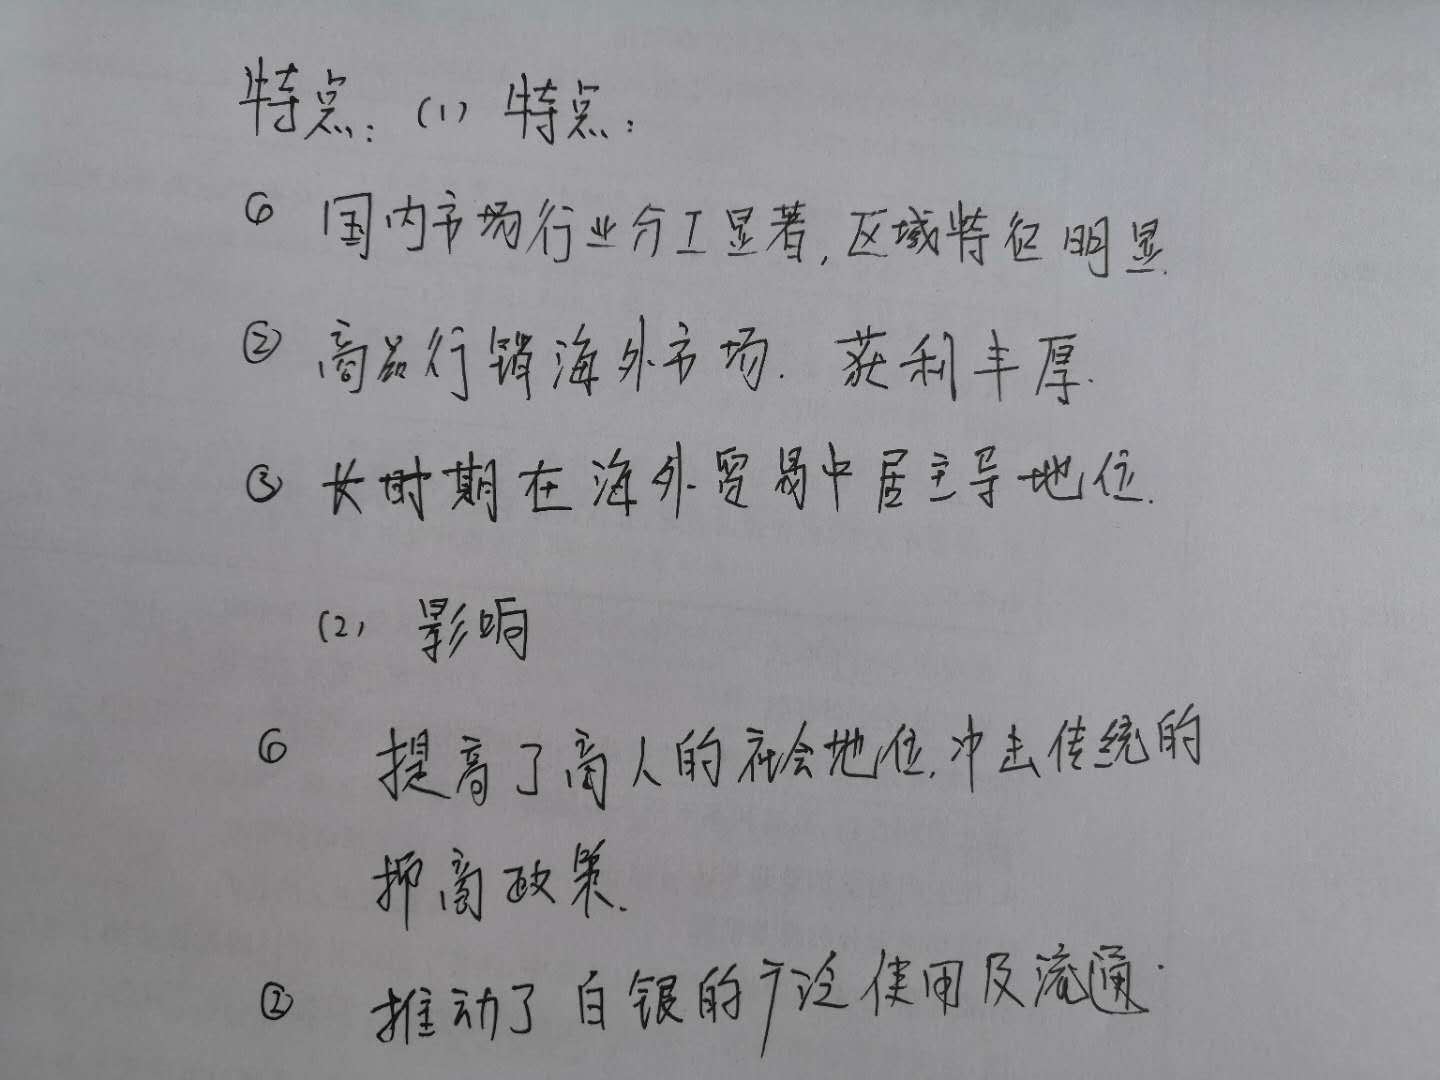 特点：（1）特点：
① 国内市场行业分工显著，区域特征明显.
② 商品行销海外市场. 获利丰厚.
③ 长时期在海外贸易中居主导地位.
（2）影响
① 提高了商人的社会地位，冲击传统的
抑商政策.
② 推动了白银的广泛使用及流通.